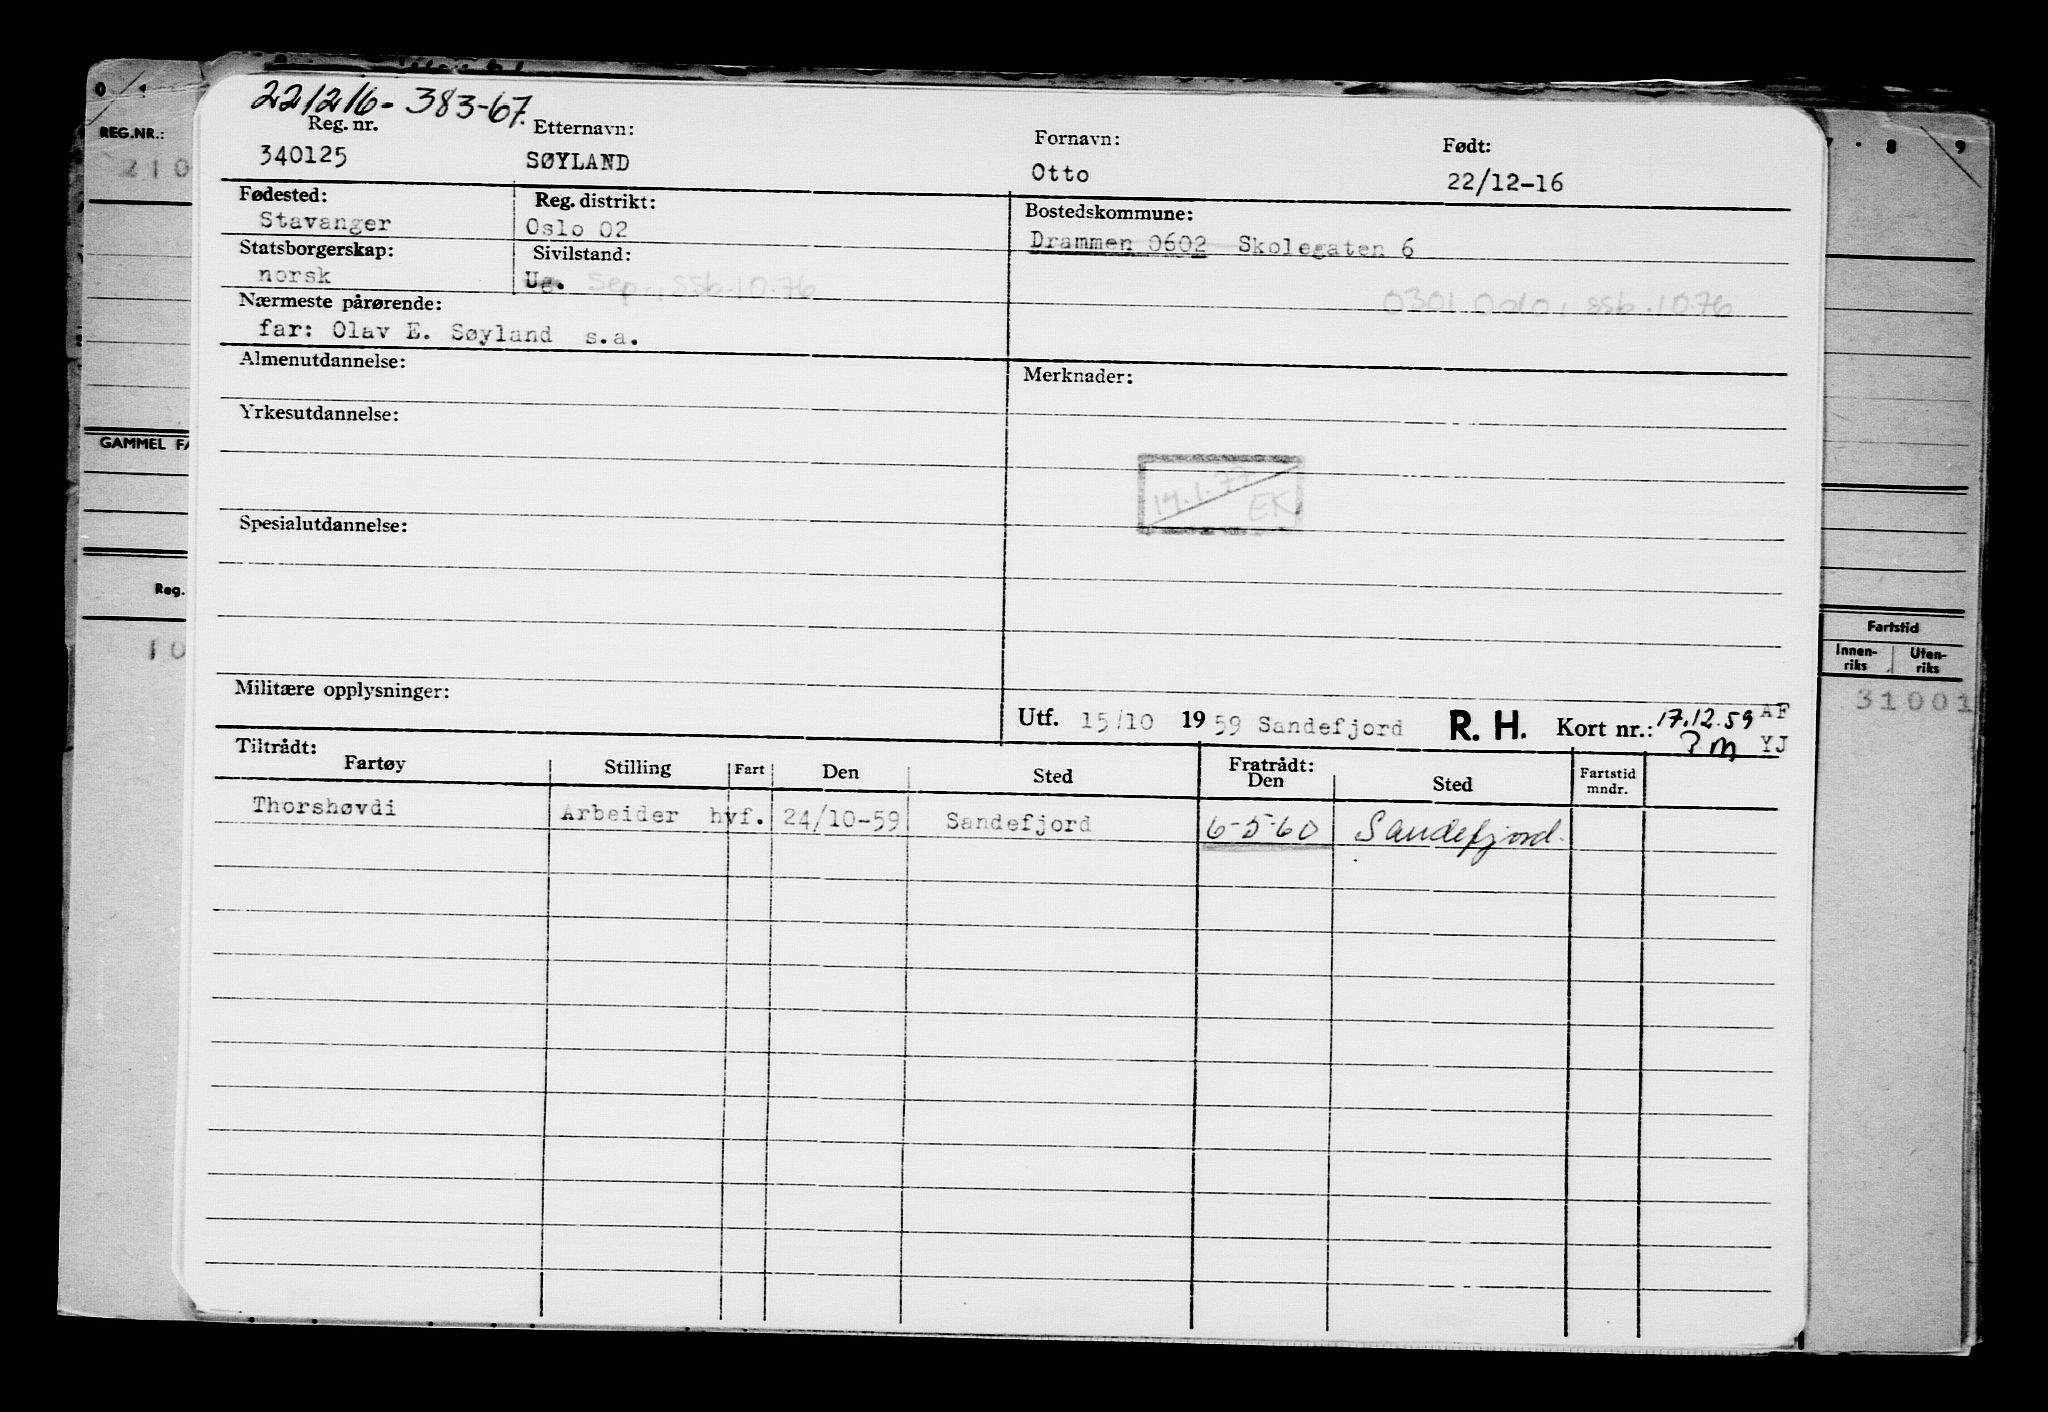 221216-383-67.
Reg. nr. Etternavn: Fornavn: Født:
340125 SØYLAND Otto 22/12-16
Fødested: Reg. distrikt: Bostedskommune:
Stavanger Oslo 02 Drammen 0602 Skolegaten 6
Statsborgerskap: Sivilstand:
norsk Ug. Sep., ssb.10.76 0301 Oslo, ssb.10.76
Nærmeste pårørende:
far: Olav E. Søyland s.a.
Almenutdannelse: Merknader:
Yrkesutdannelse:
14.1.77 EK
Spesialutdannelse:
Militære opplysninger:
Utf. 15/10 1959 Sandefjord R. H. Kort nr.: 17.12.59 AF
YJ
Tiltrådt: Fratrådt:
Fartøy Stilling Fart Den Sted Den Sted Fartstid mndr.
Thorshøvdi Arbeider hvf. 24/10-59 Sandefjord 6-5-60 Sandefjord.
0 1
REG.NR.:
210
GAMMEL FA
Reg.
10
8 9
Fartstid
Innen-riks Uten-riks
31001